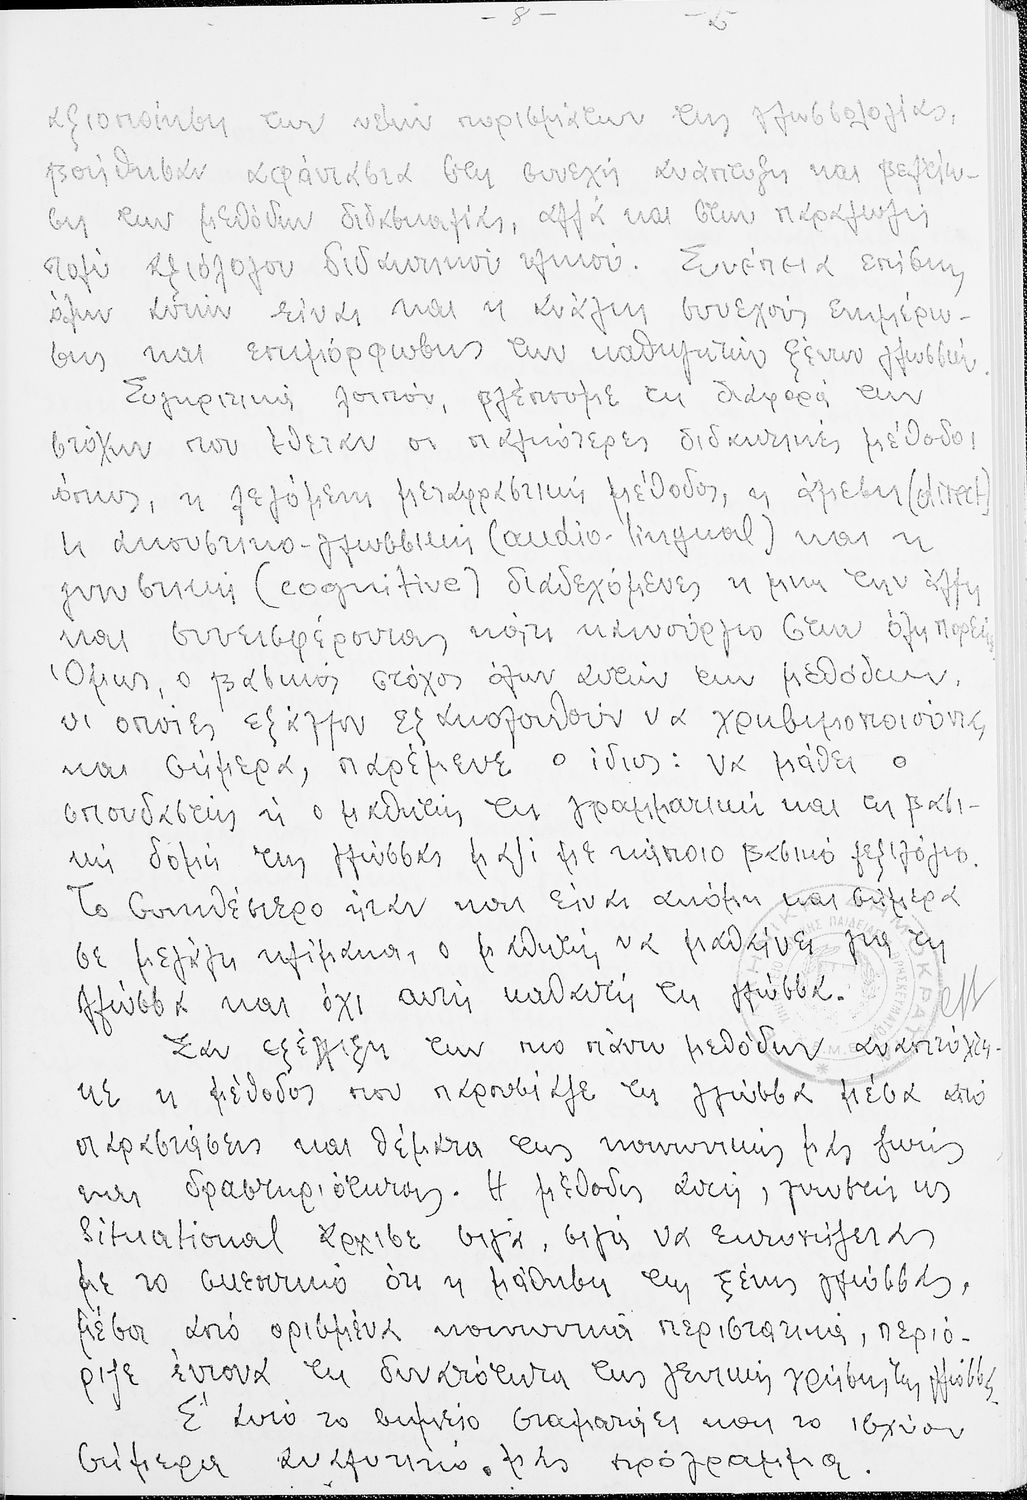 - 8 -
αξιοποίηση των νέων πορισμάτων της γλωσσολογίας,
βοήθησαν αφάνταστα στη συνεχή ανάπτυξη και βελτίω-
ση των μεθόδων διδασκαλίας, αλλά και στην παραγωγή
πολύ αξιόλογου διδακτικού υλικού. Συνέπεια επίσης
όλων αυτών είναι και η ανάγκη συνεχούς ενημέρω-
σης και επιμόρφωσης των καθηγητών ξένων γλωσσών.
Συγκριτικά λοιπόν, βλέπουμε τη διαφορά των
στόχων που έθεταν οι παλιότερες διδακτικές μέθοδοι
όπως, η λεγόμενη μεταφραστική μέθοδος, η άμεση (direct)
η ακουστικο-γλωσσική (audio-lingual) και η
γνωστική (cognitive) διαδεχόμενες η μια την άλλη
και συνεισφέροντας κάτι καινούργιο στην όλη πορεία.
Όμως, ο βασικός στόχος όλων αυτών των μεθόδων,
οι οποίες εξάλλου εξακολουθούν να χρησιμοποιούνται
και σήμερα, παρέμενε ο ίδιος: να μάθει ο
σπουδαστής ή ο μαθητής τη γραμματική και τη βασι-
κή δομή της γλώσσας μαζί με κάποιο βασικό λεξιλόγιο.
Το συνηθέστερο ήταν και είναι ακόμη και σήμερα
σε μεγάλη κλίμακα, ο μαθητής να μαθαίνει για τη
γλώσσα και όχι αυτή καθαυτή τη γλώσσα.
Σαν εξέλιξη των πιο πάνω μεθόδων αναπτύχθη-
κε η μέθοδος που παρουσίαζε τη γλώσσα μέσα από
παραστάσεις και θέματα της κοινωνικής μας ζωής
και δραστηριότητας. Η μέθοδος αυτή, γνωστή ως
Situational άρχισε σιγά, σιγά να εκτοπίζεται
με το σκεπτικό ότι η μάθηση της ξένης γλώσσας,
μέσα από ορισμένα κοινωνικά περιστατικά, περιό-
ριζε έντονα τη δυνατότητα της γενικής χρήσης της γλώσσας.
Σ' αυτό το σημείο σταματάει και το ισχύον
σήμερα αναλυτικό μας πρόγραμμα.